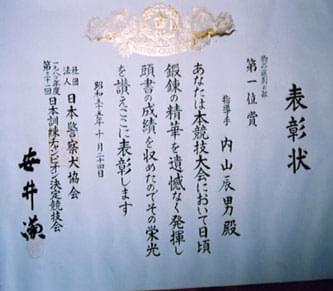 表彰状
物の選別の部
第一位賞
指導手 内山辰男殿
あなたは本競技大会において日頃
鍛錬の精華を遺憾なく発揮し
頭書の成績を収めたのでその栄光
を讃えここに表彰します
昭和五十五年十月二十四日
社団法人 日本警察犬協会
一九八〇年度
日本訓練チャンピオン決定競技会
安井